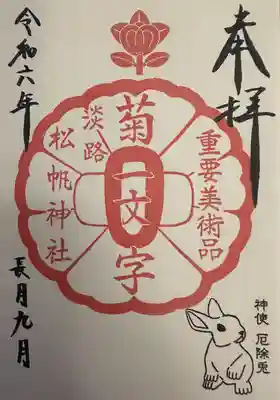 奉拝
重要美術品
菊一文字
淡路
松帆神社
令和六年
長月九月
神使 厄除兎